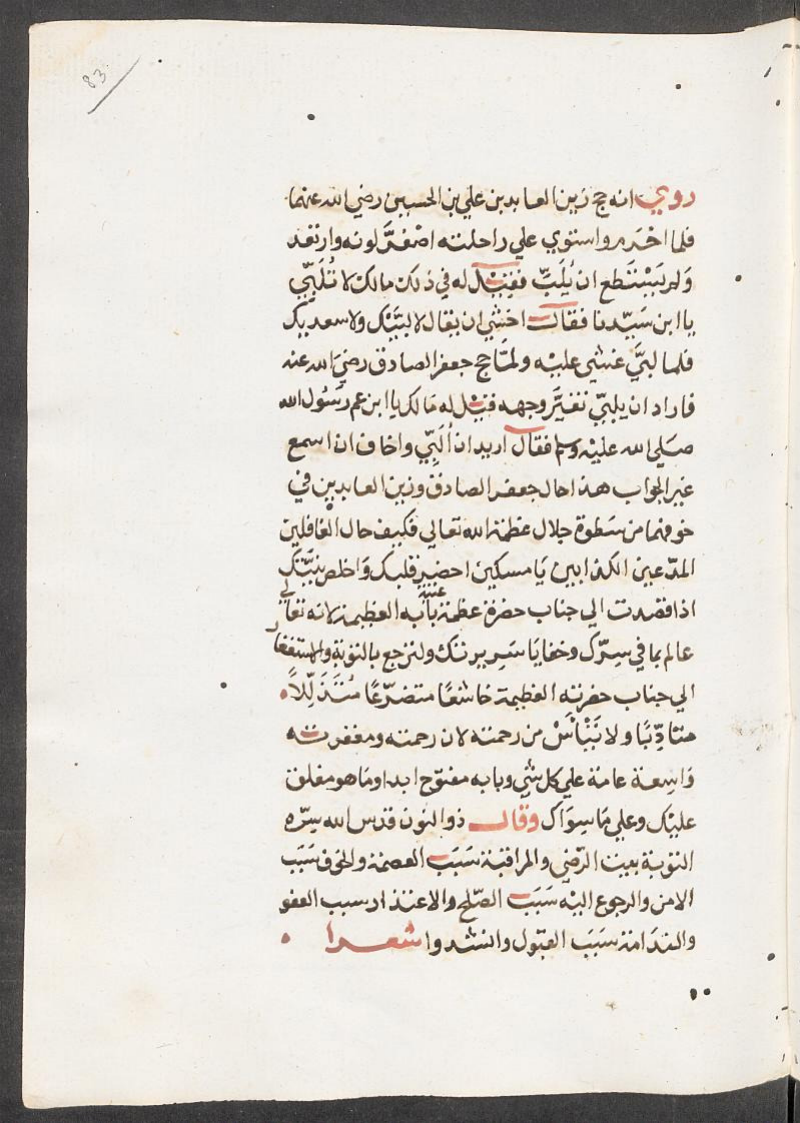 83
روي انه حج زين العابدين علي بن الحسين رضي الله عنهما
فلما احرم واستوي علي راحلته اصفرَّ لونه وارتعد
ولم يَسْتَطع ان يُلَبِّ فقيْل له في ذلك مالك لا تُلَبِّي
يا ابن سَيّدنا فقال اخشي ان يقال لا لبَّيْك ولا سعديك
فلما لبيَّ غشي عليْه ولمّا حج جعفر الصادق رضيَ الله عنه
فاراد ان يلبيّ تغيَّر وجهه فقيْل له مالك يا ابن عم رسُول الله
صَلي الله عليْه وسلم فقال اريد ان اُلَبِّي واخاف ان اسمع
غير الجواب هذا حال جعفر الصادق وزين العابدين في
خوفهما من سَطوة جلال عظمة الله تعالي فكيف حال الغافلين
المدّعين الكذابين يَا مسكين احضر قلبك وَاخلص نيَّتك
اذا قصدت الي جناب حضرة عظمة عتبة بابه العظيمة لانه تعالي
عالم بما في سِرّك وخفايَا سَريرتك ولترجع بالتوبة والاستغفار
الي جناب حضرته العظيمة خاشعًا متضرّعًا مُتَذَلِّلاً
متادِّبًا ولا تَيْأَسْ من رحمته لان رحمته ومغفرته
وَاسِعة عامة علي كل شي وبابه مفتوح ابدا وما هو مغلق
عليْك وعلي مَا سِوَاك وقال ذو النون قدس الله سِرّه
التوبة بيت الرّضي والمراقبة سَبَب العصمة والخوف سَبَب
الامن والرجوع اليْه سَبَب الصّلح والاعتذار سبب العفو
والندَامة سَبَب القبول وانشدوا شعرا